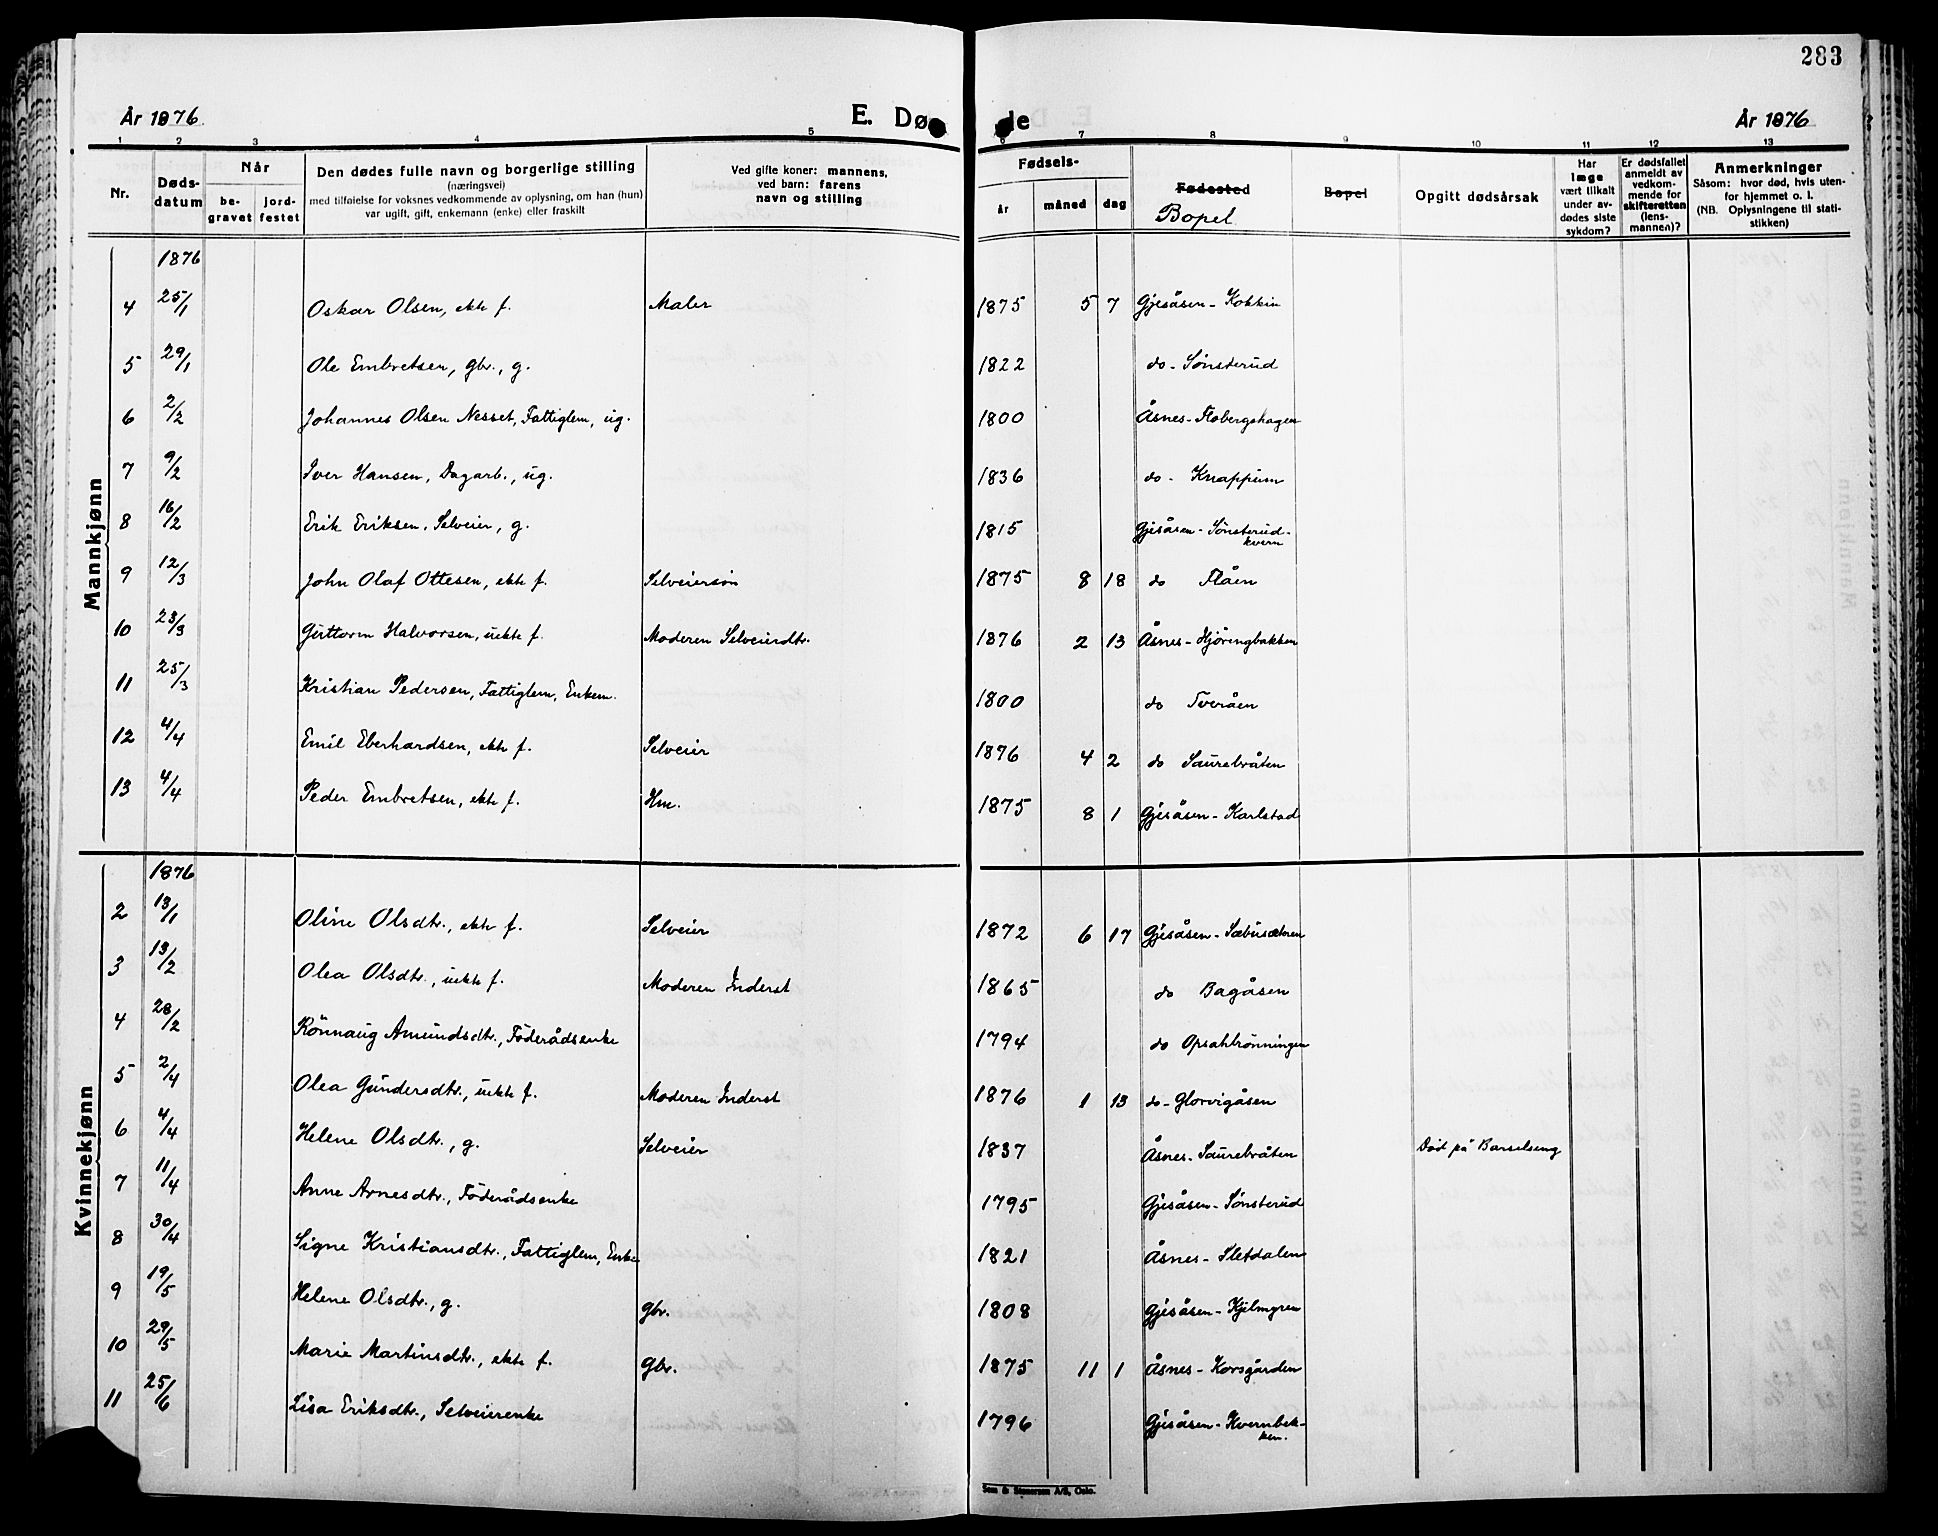 283
År 1876
E. Dø de
År 1876
1 2 3 4 5 6 7 8 9 10 11 12 13
Nr.
Døds-
datum
Når
be-
gravet
jord-
festet
Den dødes fulle navn og borgerlige stilling
(næringsvei)
med tilføielse for voksnes vedkommende av oplysning, om han (hun)
var ugift, gift, enkemann (enke) eller fraskilt
Ved gifte koner: mannens,
ved barn: farens
navn og stilling
Fødsels-
år måned dag
Fødested
Bopel
Bopel
Opgitt dødsårsak
Har
læge
vært tilkalt
under av-
dødes siste
sykdom?
Er dødsfallet
anmeldt av
vedkom-
mende for
skifteretten
(lens-
mannen)?
Anmerkninger
Såsom: hvor død, hvis uten-
for hjemmet o. l.
(NB. Oplysningene til stati-
stikken)
Mannkjønn
1876
4 25/1 Oskar Olsen, ekte f. Maler 1875 5 7 Gjesåsen - Kokkin
5 29/1 Ole Embretsen, gbr., g. 1822 do - Sønsterud
6 2/2 Johannes Olsen Nesset, Fattiglem, ug. 1800 Åsnes - Flobergshagen
7 9/2 Iver Hansen, Dagarb., ug. 1836 do - Knappum
8 16/2 Erik Eriksen, Selveier, g. 1815 Gjesåsen - Sønsterud-
kvern
9 12/3 John Olaf Ottesen, ekte f. Selveiersøn 1875 8 18 do Flåen
10 23/3 Guttorm Halvorsen, uekte f. Moderen Selveierdtr. 1876 2 13 Åsnes - Hjöringbakken
11 25/3 Kristian Pedersen, Fattiglem, Enkem. 1800 do Tveråen
12 4/4 Emil Eberhardsen, ekte f. Selveier 1876 4 2 do Saurebråten
13 4/4 Peder Embretsen, ekte f. Hm. 1875 8 1 Gjesåsen - Karlstad
Kvinnekjønn
1876
2 13/1 Oline Olsdtr., ekte f. Selveier 1872 6 17 Gjesåsen - Sæbusæteren
3 13/2 Olea Olsdtr., uekte f. Moderen Inderst 1865 do Bagåsen
4 28/2 Rönnaug Amundsdtr., Föderådsenke 1794 do Opsahlrönningen
5 2/4 Olea Gundersdtr., uekte f. Moderen Inderst 1876 1 13 do - Glorvigåsen
6 4/4 Helene Olsdtr., g. Selveier 1837 Åsnes - Saurebråten Död på Barselseng
7 11/4 Anne Arnesdtr., Föderådsenke 1795 Gjesåsen - Sønsterud
8 30/4 Signe Kristiansdtr., Fattiglem, Enke 1821 Åsnes - Sletdalen
9 19/5 Helene Olsdtr., g. Gbr. 1808 Gjesåsen - Kjelmyren
10 29/5 Marie Martinsdtr., ekte f. Gbr. 1875 11 1 Åsnes - Korsgården
11 25/6 Lisa Eriksdtr., Selveierenke 1796 Gjesåsen - Kvernbek-
ken.
Sem & Stenersen A/S, Oslo.